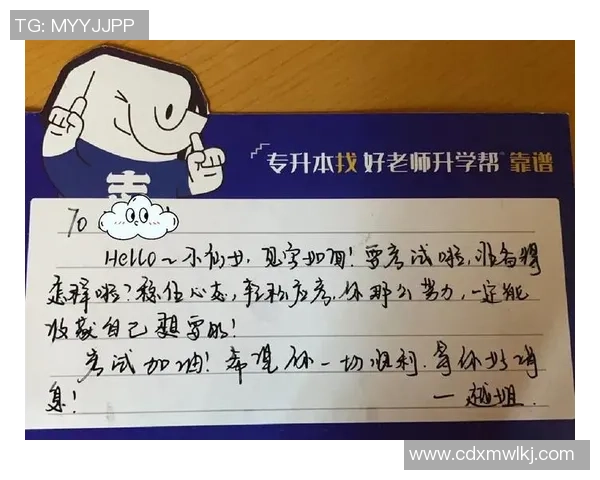 TG: MYYJJPP
专升本找 好老师升学帮 靠谱
志
To
Hello~小仙女,见字如面!要考试啦,准备得
怎样啦?稳住心态,轻松应考,你那么努力,一定能
收获自己想要的!
考试加油!希望你一切顺利.等你好消
息!
—越姐.
www.cdxmwlkj.com